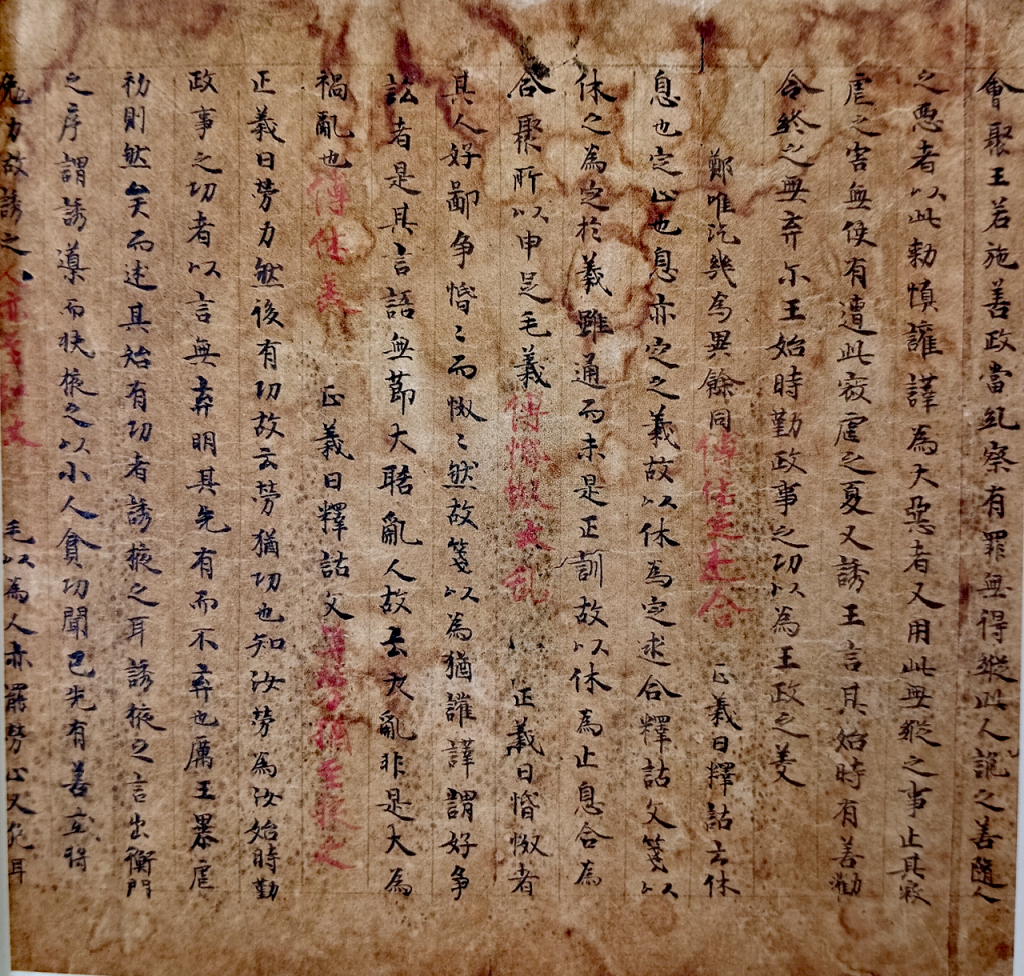 會聚王若施善政當糺察有罪無得縱此人詭之善隨人
之惡者以此勅慎讙譁為大惡者又用此無縱之事止其寇
虐之害無使有遭此寇虐之憂又誘王言其始時有善勸
令終之無弃尒王始時勤政事之功以為王政之美
鄭唯汔幾為異餘同傳休定逑合 正義曰釋詁云休
息也定止也息亦定之義故以休為定逑合釋詁文箋以
休之為定於義雖通而未是正訓故以休為止息合為
合聚所以申足毛義傳惛怓大乱 正義曰惛怓者
其人好鄙争惛〻而怓〻然故箋以為猶讙譁謂好争
訟者是其言語無節大聒亂人故云大亂非是大為
禍亂也傳休美 正義曰釋詁文箋勞猶至掖之
正義曰勞力然後有功故云勞猶功也知汝勞為汝始時勤
政事之功者以言無弃明其先有而不弃也厲王暴虐
初則然矣而述其始有功者誘掖之耳誘掖之言出衡門
之序謂誘導而扶掖之以小人貪功聞已先有善立得
免力故誘之 毛以為人亦罷勞止又